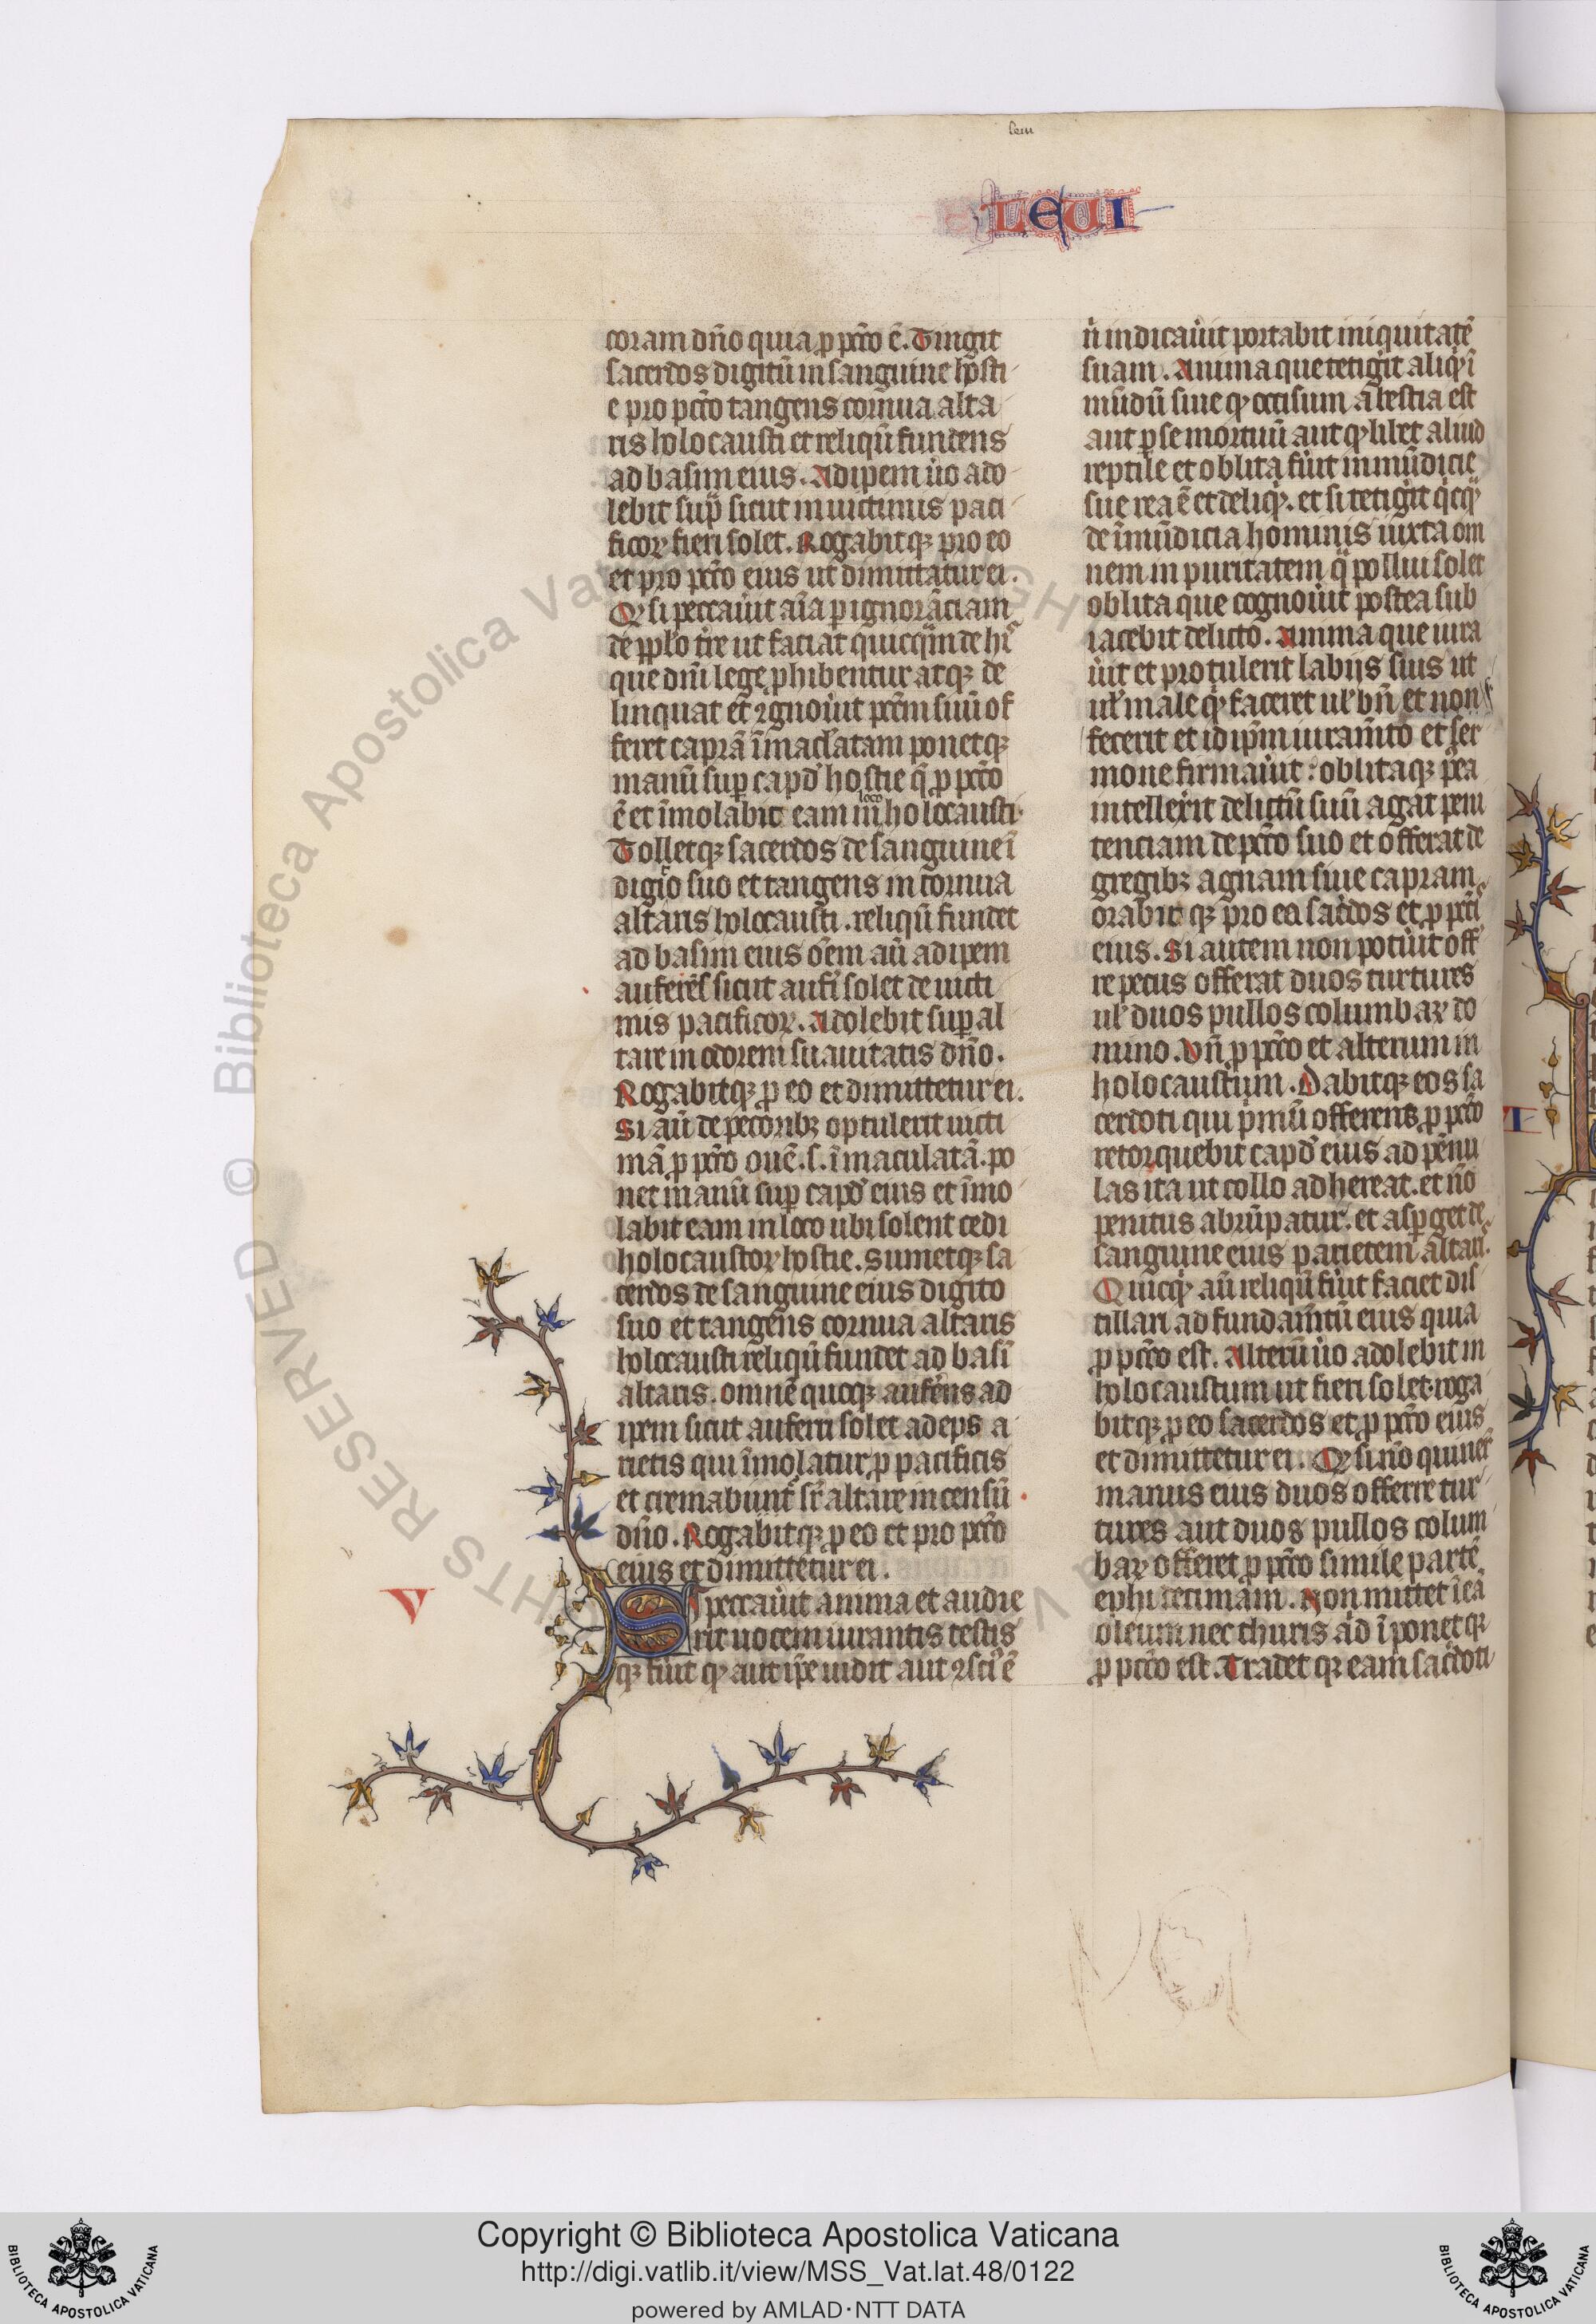 leui
LEUI
coram dño quia p pctō ē. Tingit
sacerdos digitū in sanguine hosti
e pro pctō tangens cornua alta
ris holocausti et reliqū fundens
ad basim eius. Adipem ůo ado
lebit sup̱ sicut in uictimis paci
ficoꝝ fieri solet. Rogabitqꝫ pro eo
et pro pctō eius ut dimittatur ei.
Qꝫ si peccau͛it aīa p ignorāciam
de ppło tr̄e ut faciat quicq̄m de hīs
que dñi lege phibentur atqꝫ de
linquat et ꝯgnou͛it pctm̄ suū of
feret caprā īmaclatam ponetqꝫ
manū sup capđ hostie q̄ p pctō
ē et īmolabit eam in loco holocausti.
Tolletqꝫ sacerdos de sanguine ī
digito suo et tangens in cornua
altaris holocausti. reliqū fundet
ad basim eius oēm aū adipem
auferēs sicut aufi͛ solet de uicti
mis pacificoꝝ. Adolebit sup al
tare in odorem suauitatis dño.
Rogabitqꝫ p eo et dimittetur ei.
Si aū de pecoribꝫ optulerit uicti
mā p pctō ouē .s. īmaculatā. po
net manū sup capđ eius et īmo
labit eam in loco ubi solent cedi
holocaustoꝝ hostie. Sumetqꝫ sa
cerdos de sanguine eius digito
suo et tangens cornua altaris
holocausti reliqū fundet ad basī
altaris. omnē quoqꝫ auferēs ad
ipem sicut auferri solet adeps a
rietis qui īmolatur p pacificis
et cremabunt͛ sr̄ altare incensū
dño. Rogabitqꝫ p eo et pro pctō
eius et dimittetur ei.
V
SI peccau͛it anima et audie
rit uocem iurantis testis
qꝫ fu͛it qꝫ aut ipē uidit aut ꝯsci͛ ē
n̄ indicau͛it portabit iniquitatē
suam. Anima que tetig͛it aliqꝫ ī
mūdū siue qꝫ occisum a bestia est
aut p se mortuū aut qꝫlilet aliud
reptile et oblita fu͛it inmūdicie
sue rea ē et deliqꝫ. et si tetig͛it q̇cqꝫ
de īmūdicia hominis iuxta om
nem inpuritatem q̄ pollui solet
oblita que cognou͛it postea sub
iacebit delicto. Anima que iura
u͛it et protulerit labijs suis ut
uł male qꝫ faceret uł bn̄ et non
fecerit et idip̄m iuramt̄o et ser
mone firmau͛it: oblitaqꝫ p̄ea
intellex͛it delictū suū agat peni
tenciam de pctō suo et offerat de
gregibꝫ agnam siue capram
orabit qꝫ pro ea sac͛dos et p pctī
eius. Si autem non potu͛it off
re pecus offerat duos turtures
uł duos pullos columbaꝝ do
mino. Vn̄ p pctō et alterum in
holocaustum. Dabitqꝫ eos sa
cerdoti qui p͛mū offerens p pctō
retorquebit capđ eius ad pēnu
las ita ut collo adhereat. et nō
penitus abrūpatur. et asp̱get de
sanguine eius parietem altaris.
Quicqꝫ aū reliqū fu͛it faciet dis
tillari ad fundamt̄ū eius quia
p pctō est. Alterū ůo adolebit in
holocaustum ut fieri solet. roga
bitqꝫ p eo sacerdos et p pctō eius
et dimittetur ei. Qꝫ si nō quiuer͛
manus eius duos offerre tur
tures aut duos pullos colum
baꝝ offeret p pctō simile partē
ephi decimam. Non mittet ī eā
oleum nec thuris a͛d īponet qꝫ
p pctō est. Tradet qꝫ eam sac͛doti
Copyright © Biblioteca Apostolica Vaticana
http://digi.vatlib.it/view/MSS_Vat.lat.48/0122
powered by AMLAD·NTT DATA
BIBLIOTECA APOSTOLICA VATICANA
BIBLIOTECA APOSTOLICA VATICANA